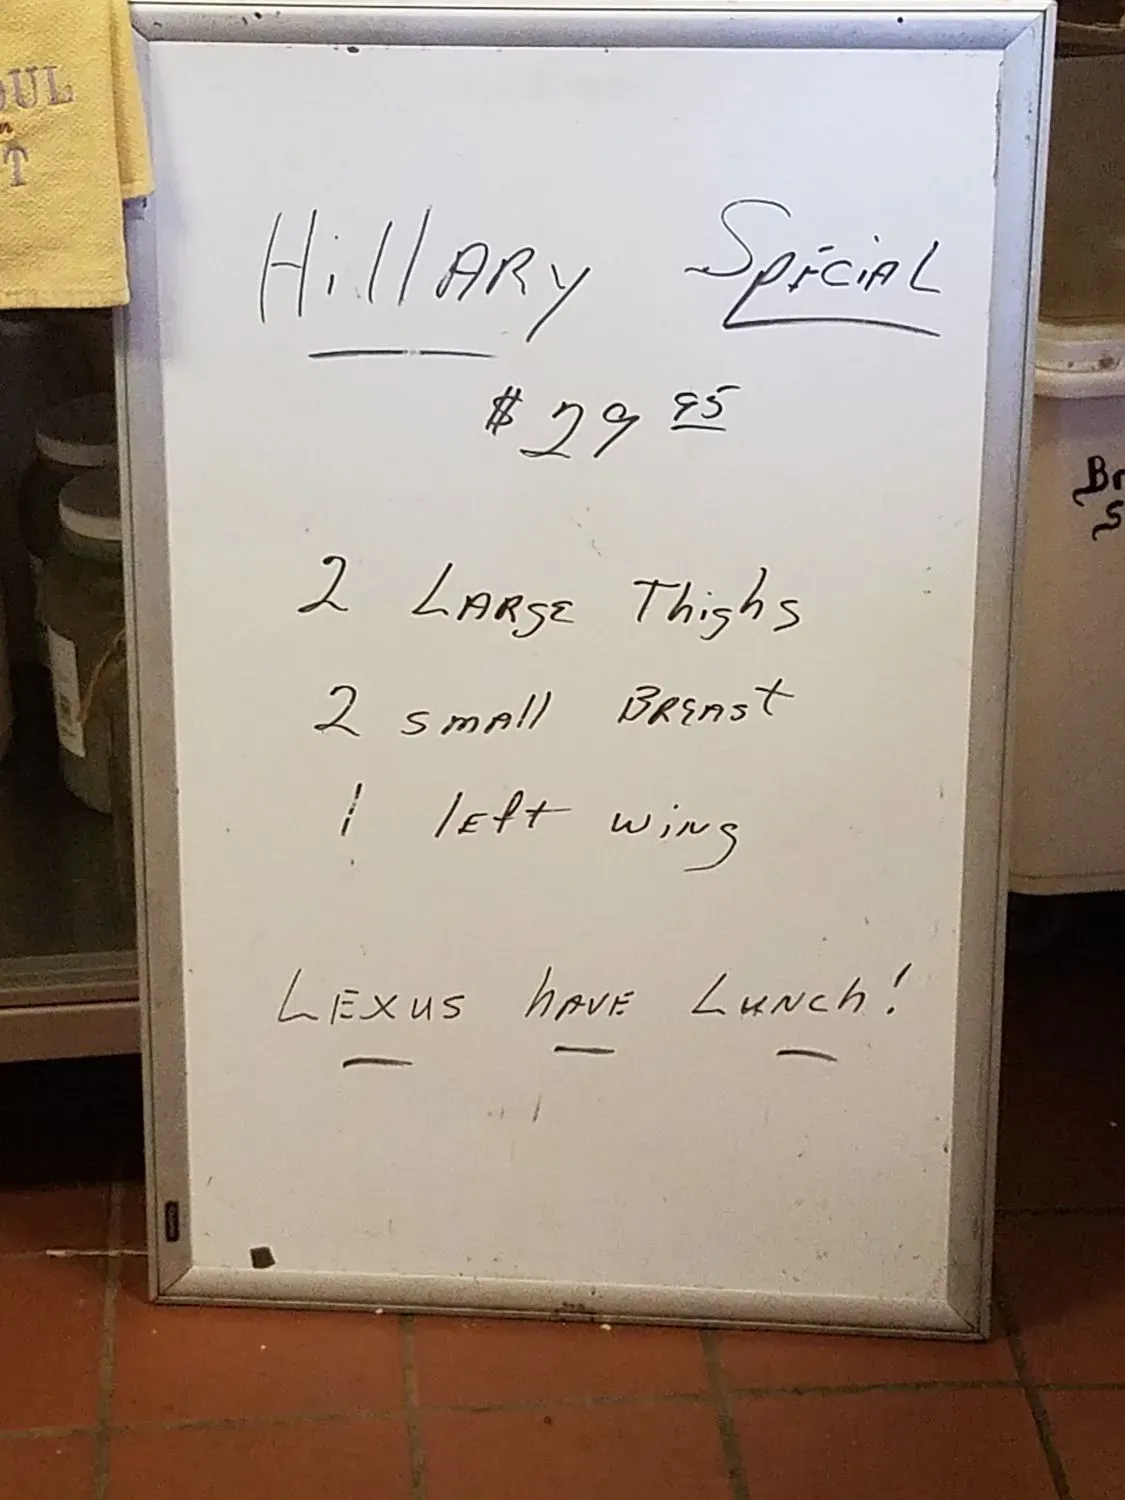 OUL
T
Hillary Special
$29 95
2 Large Thighs
2 small Breast
1 left wing
Lexus have Lunch!
Br
S